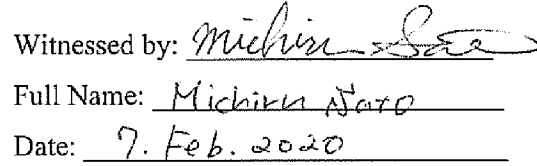 Witnessed by: Michiru Sato
Full Name: Michiru Sato
Date: 7. Feb. 2020